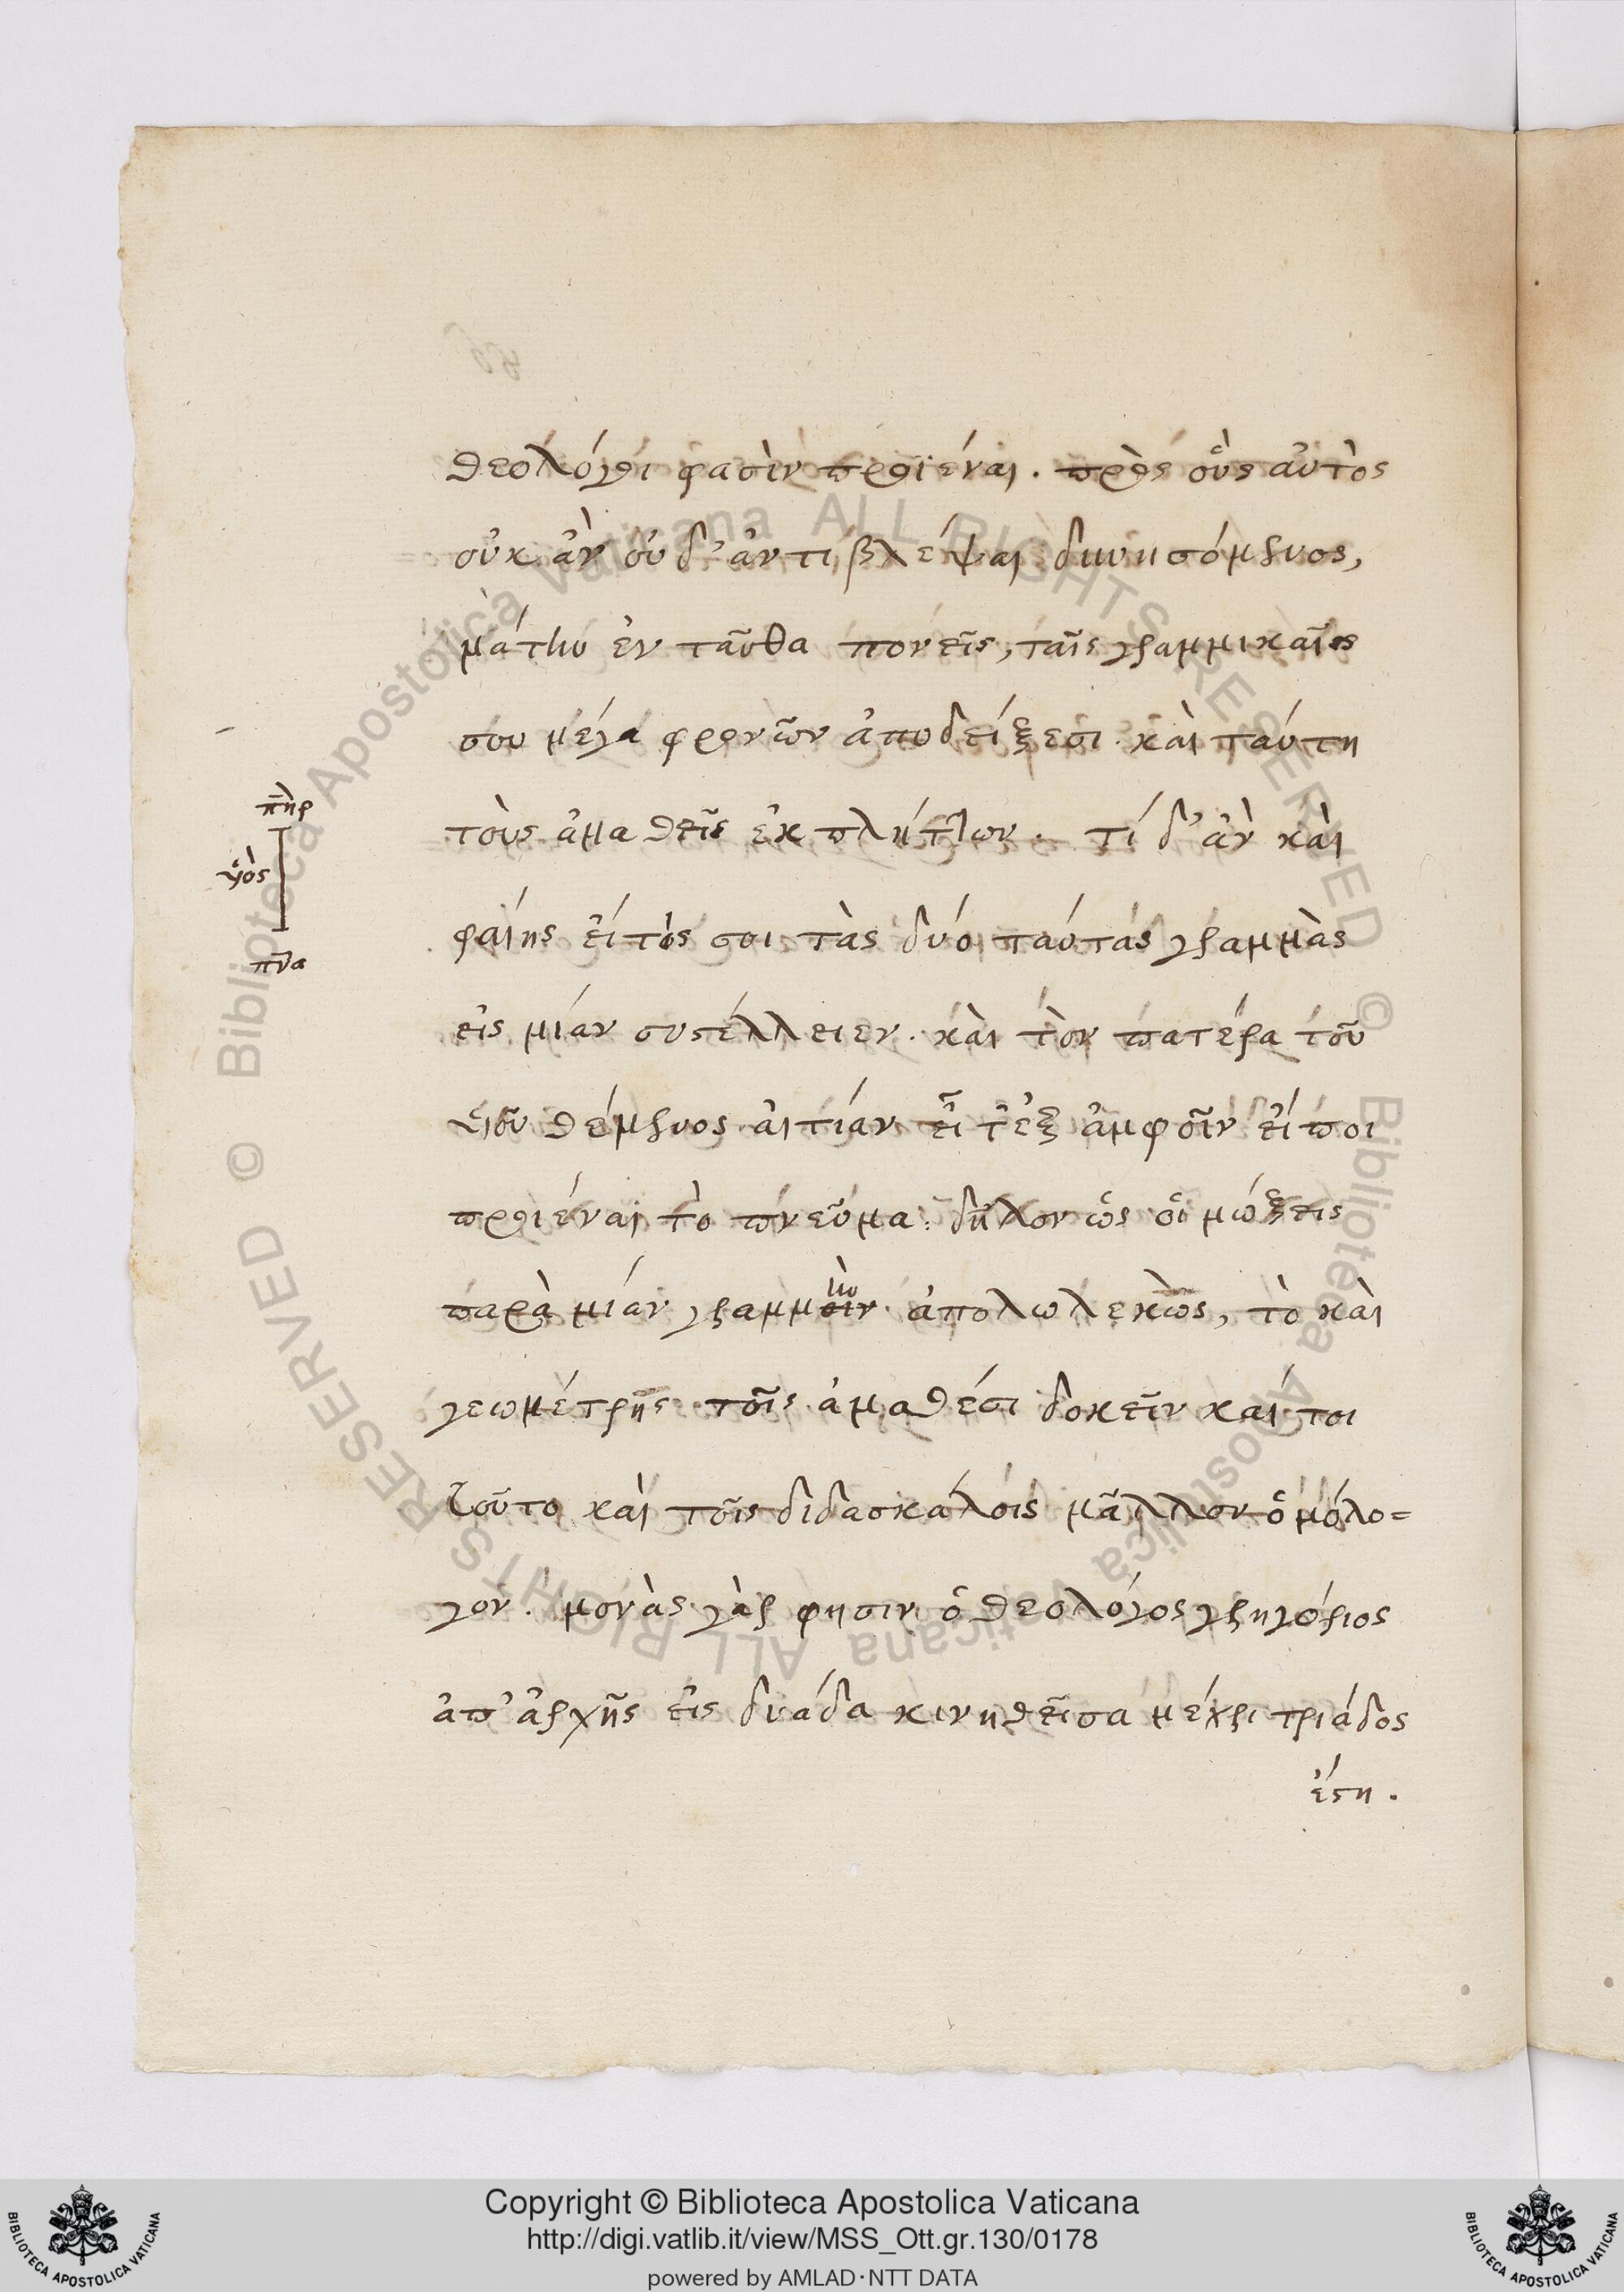 θεολόγοι φασὶν προϊέναι. πρὸς οὓς αὐτὸς
οὐκ ἂν οὐδ' ἀντιβλέψαι δυνησόμενος,
μάτην ἐν ταῦθα πονεῖς, ταῖς γραμμικαῖς
σου μέγα φρονῶν ἀποδείξεσι. καὶ ταύτη
πηρ
τοὺς ἀμαθεῖς ἐκπλήττων. τί δ' ἂν καὶ
υἱὸς
φαίης εἴ τις σοι τὰς δύο ταύτας γραμμὰς
πνα
εἰς μίαν συστέλλειεν. καὶ τὸν πατέρα τοῦ
υἱοῦ θέμενος αἰτίαν εἶτ' ἐξ ἀμφοῖν εἴποι
προιέναι τὸ πνεῦμα. δῆλον ὡς οἰμώξεις
παρὰ μίαν γραμμὴν ἀπολωλεκὼς, τὸ καὶ
γεωμέτρης τοῖς ἀμαθέσι δοκεῖν καί τοι
τοῦτο καὶ τοῖς διδασκάλοις μᾶλλον ὁμόλο=
γον. μονὰς γὰρ φησιν ὁ θεολόγος γρηγόριος
ἀπ' ἀρχῆς εἰς δυάδα κινηθεῖσα μέχρι τριάδος
ἔστη.
© Biblioteca Apostolica Vaticana ALL RIGHTS RESERVED
© Biblioteca Apostolica Vaticana ALL RIGHTS RESERVED
Copyright © Biblioteca Apostolica Vaticana
http://digi.vatlib.it/view/MSS_Ott.gr.130/0178
powered by AMLAD・NTT DATA
BIBLIOTECA APOSTOLICA VATICANA
BIBLIOTECA APOSTOLICA VATICANA